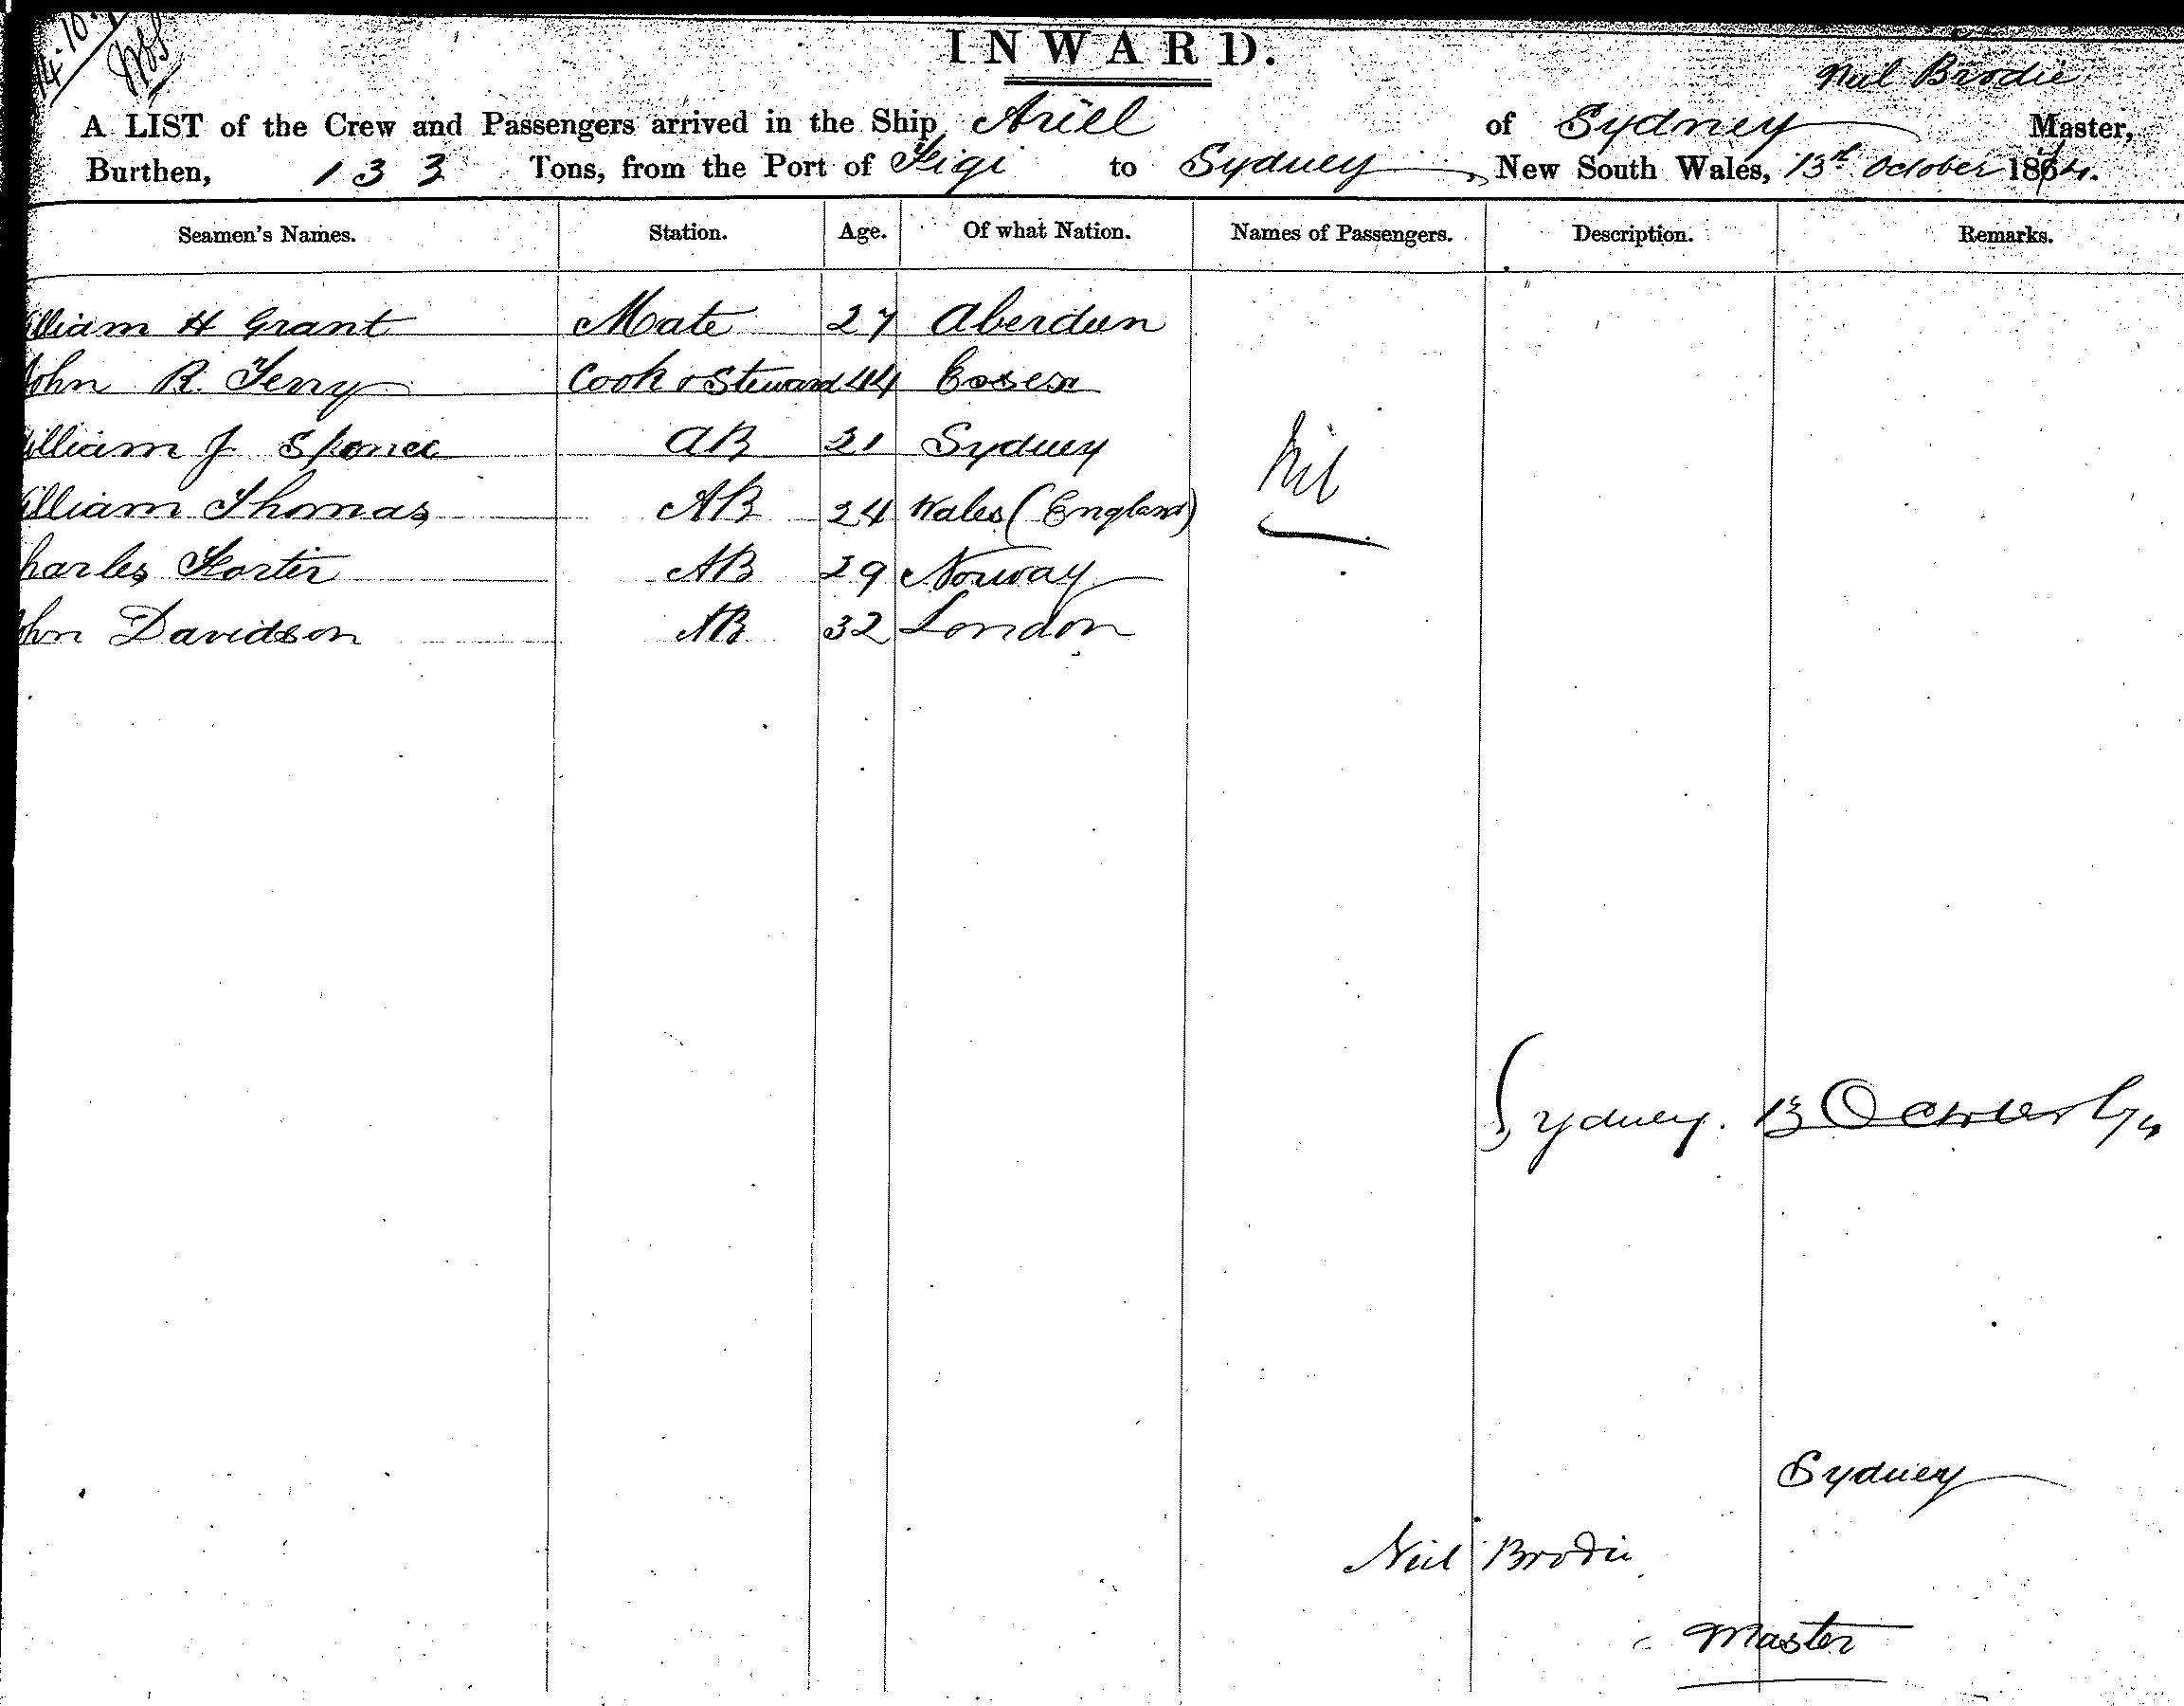 14.10.
INWARD.
Neil Brodie
A LIST of the Crew and Passengers arrived in the Ship Ariel of Sydney Master,
Burthen, 133 Tons, from the Port of Figi to Sydney, New South Wales, 13th October 1874.
Seamen's Names. Station. Age. Of what Nation. Names of Passengers. Description. Remarks.
illiam H Grant Mate 27 Aberdeen
John R. Terry Cook & Steward 44 Essex
illiam J Spence AB 21 Sydney Nil
illiam Thomas AB 24 Wales (England)
harles Forter AB 29 Norway
ohn Davidson AB 32 London
Sydney. 13 October 74
Sydney
Neil Brodie
Master